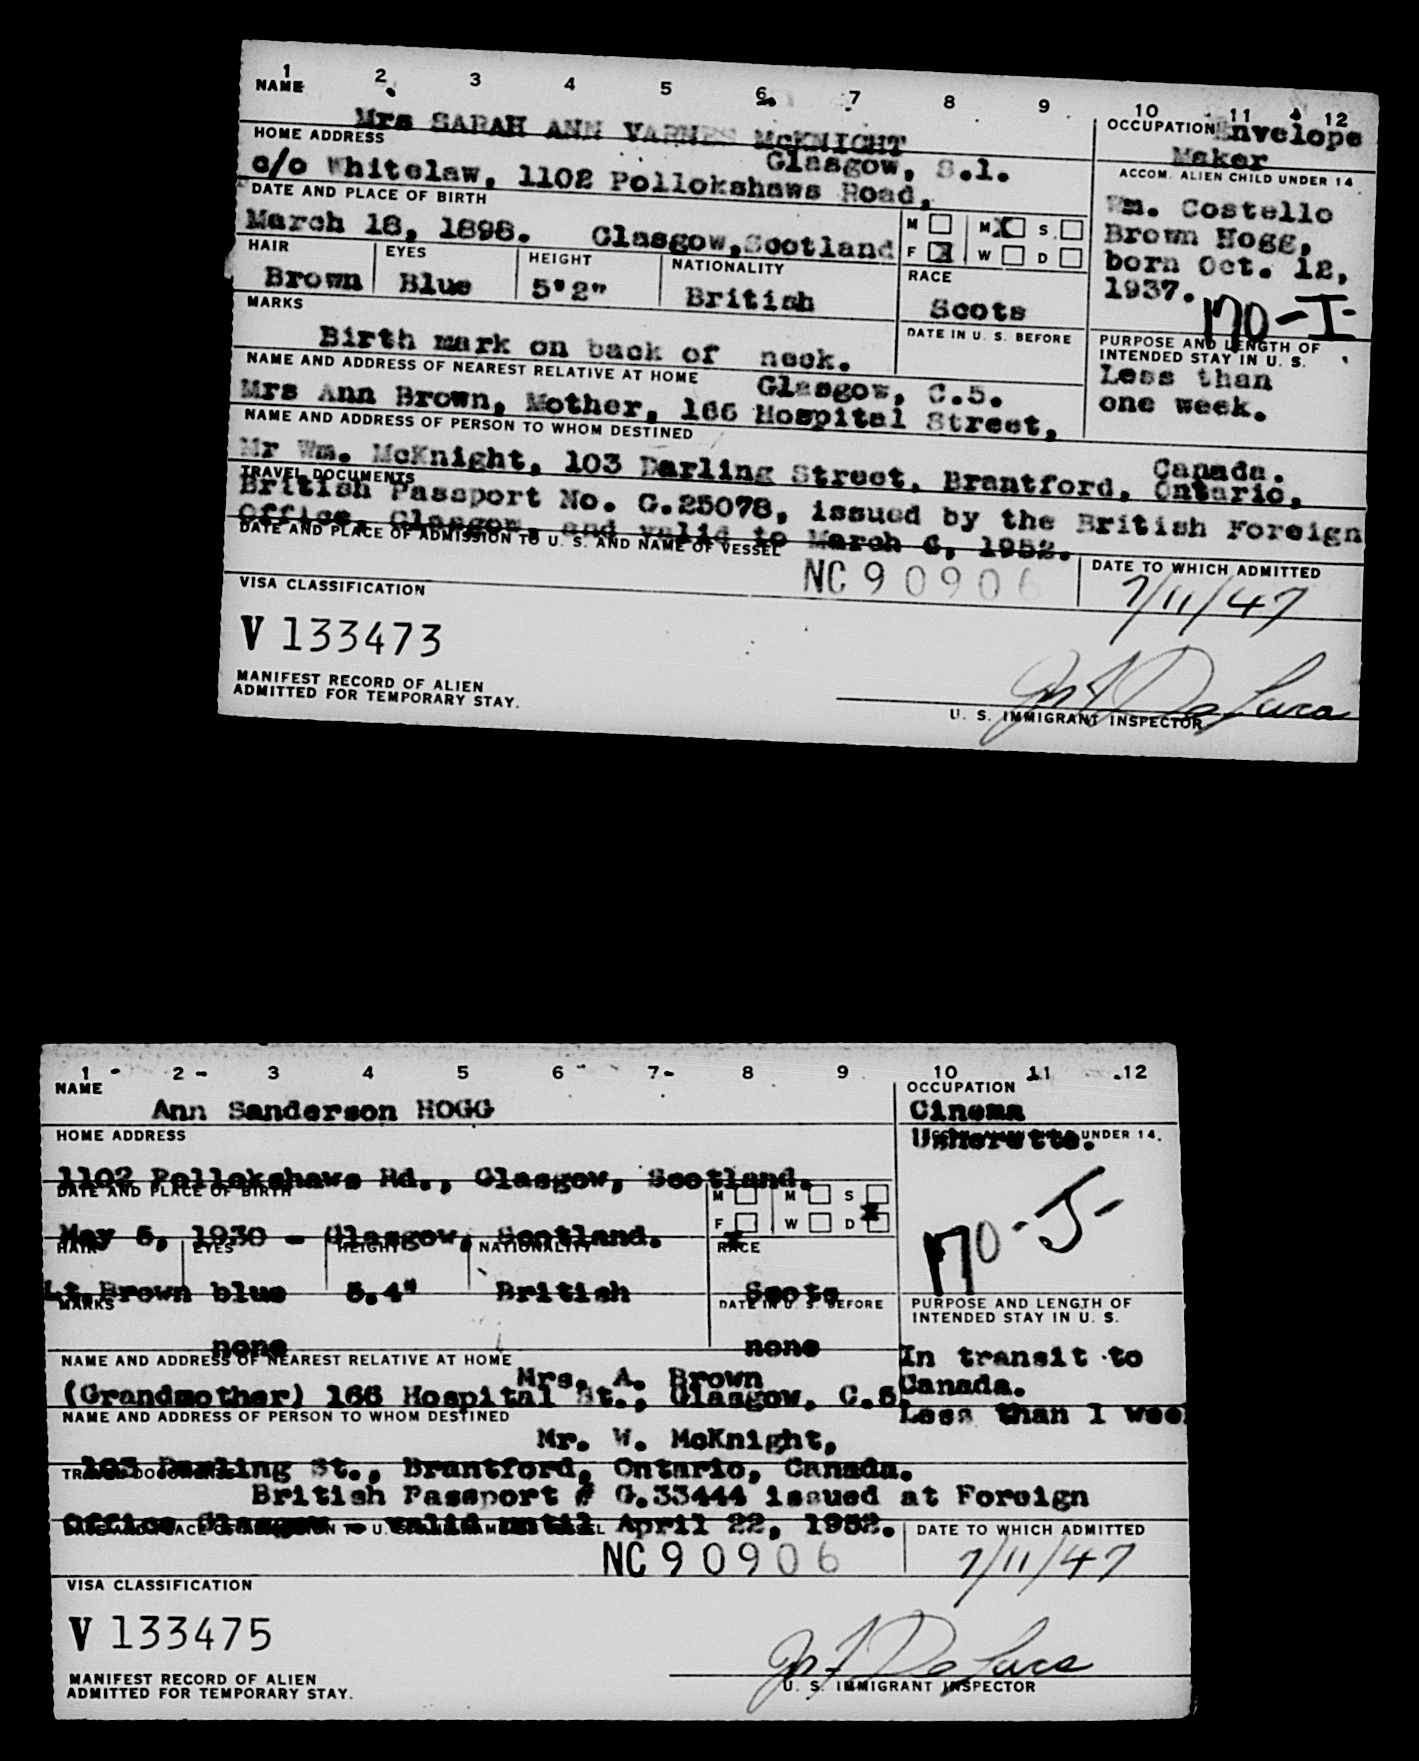 1 2 3 4 5 6 7 8 9 10 11 12
NAME
Mrs SARAH ANN VARNES McKNIGHT
OCCUPATION Envelope
Maker
HOME ADDRESS
Glasgow, S.1.
c/o Whitelaw, 1102 Pollokshaws Road,
ACCOM. ALIEN CHILD UNDER 14
Wm. Costello
Brown Hogg,
born Oct. 12,
1937.
no-I-
DATE AND PLACE OF BIRTH
March 18, 1898. Glasgow, Scotland
M M X S
F X W D
HAIR EYES HEIGHT NATIONALITY RACE
Brown Blue 5'2" British Scots
MARKS
Birth mark on back of neck.
DATE IN U. S. BEFORE
PURPOSE AND LENGTH OF
INTENDED STAY IN U. S.
Less than
one week.
NAME AND ADDRESS OF NEAREST RELATIVE AT HOME
Glasgow, C.5.
Mrs Ann Brown, Mother, 166 Hospital Street,
NAME AND ADDRESS OF PERSON TO WHOM DESTINED
Canada.
Mr Wm. McKnight, 103 Darling Street, Brantford, Ontario,
TRAVEL DOCUMENTS
British Passport No. G.25078, issued by the British Foreign
Office, Glasgow, and valid to March 6, 1952.
DATE AND PLACE OF ADMISSION TO U. S. AND NAME OF VESSEL
NC 90906
DATE TO WHICH ADMITTED
7/11/47
VISA CLASSIFICATION
V 133473
MANIFEST RECORD OF ALIEN
ADMITTED FOR TEMPORARY STAY.
U. S. IMMIGRANT INSPECTOR
1 2 3 4 5 6 7 8 9 10 11 12
NAME
Ann Sanderson HOGG
OCCUPATION
Cinema
Usherette.
UNDER 14.
HOME ADDRESS
1102 Pollokshaws Rd., Glasgow, Scotland.
DATE AND PLACE OF BIRTH
May 5, 1930 - Glasgow, Scotland.
M M S X
F X W D
no-J-
HAIR EYES HEIGHT NATIONALITY RACE
Lt.Brown blue 5.4" British Scots
MARKS
none
DATE IN U. S. BEFORE
none
PURPOSE AND LENGTH OF
INTENDED STAY IN U. S.
In transit to
Canada.
Less than 1 week
NAME AND ADDRESS OF NEAREST RELATIVE AT HOME
Mrs. A. Brown
(Grandmother) 166 Hospital St., Glasgow, C.5.
NAME AND ADDRESS OF PERSON TO WHOM DESTINED
Mr. W. McKnight,
103 Darling St., Brantford, Ontario, Canada.
TRAVEL DOCUMENTS
British Passport # G.33444 issued at Foreign
Office Glasgow - valid until April 22, 1952.
NC 90906
DATE TO WHICH ADMITTED
7/11/47
VISA CLASSIFICATION
V 133475
MANIFEST RECORD OF ALIEN
ADMITTED FOR TEMPORARY STAY.
U. S. IMMIGRANT INSPECTOR